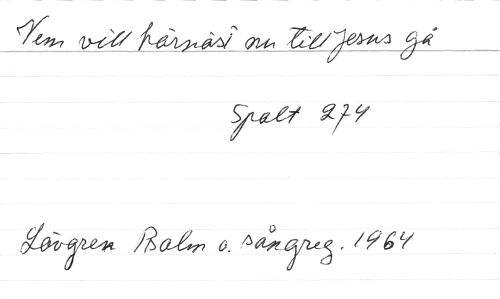 Vem vill härnäst nu till Jesus gå
Spalt 274
Lövgren Psalm o. sångreg. 1964